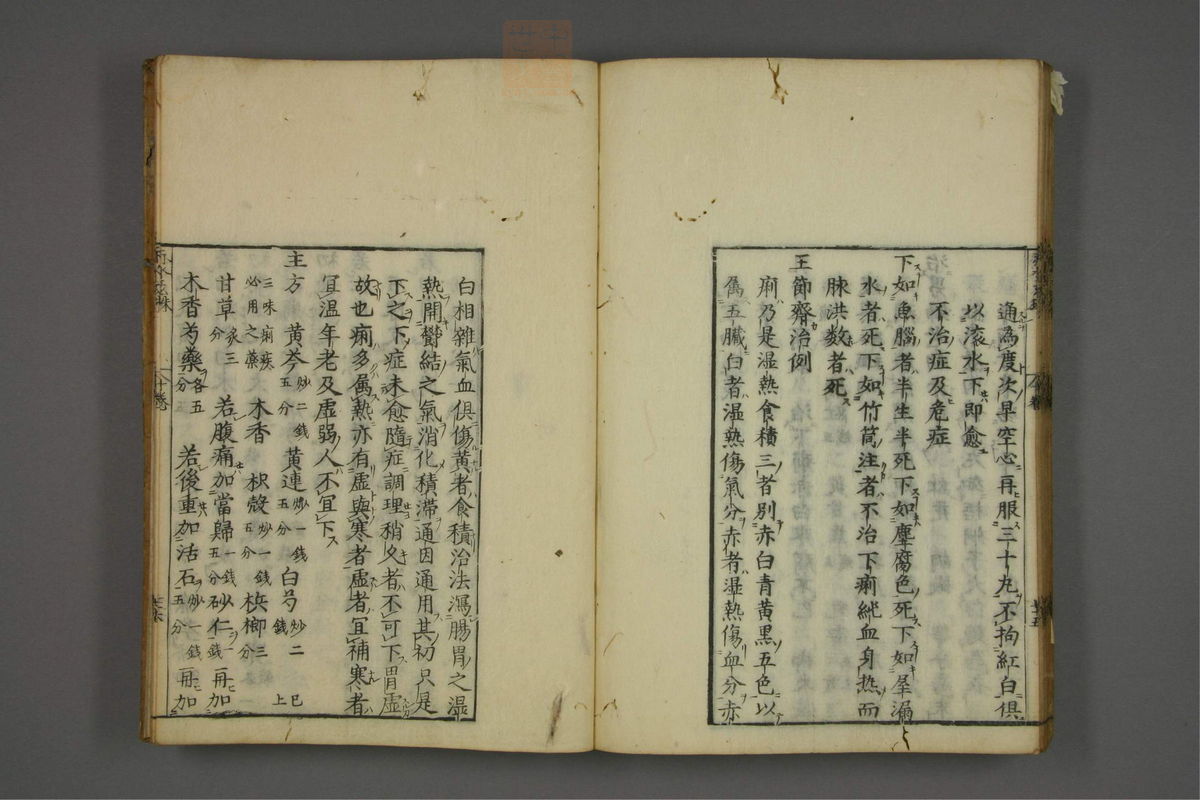 通為度次早空心再服三十丸不拘紅白俱
以滚水下即愈
不治症及危症
下如魚腦者半生半死下如塵腐色死下如屋漏
水者死下如竹筒注者不治下痢純血身热而
脉洪数者死
王節齋治例
痢乃是湿热食積三者別赤白青黄黒五色以
属五臓白者湿熱傷氣分赤者湿熱傷血分赤
白相雜氣血俱傷黄者食積治法瀉腸胃之湿
熱開欝結之氣消化積滞通因通用其初只是
下之下症未愈隨症調理稍久者不可下胃虚
故也痢多属熱亦有虚與寒者虚者宜補寒者
宜温年老及虚弱人不宜下
主方 黄芩炒二銭五分 黄連炒一銭五分 白芍炒二銭 已上
三味痢疾必用之藥 木香 枳殻炒一銭五分 梹榔三分
甘草炙三分 若腹痛加當歸一銭五分砂仁一銭再加
木香芍藥各五分 若後重加活石炒一銭五分再加